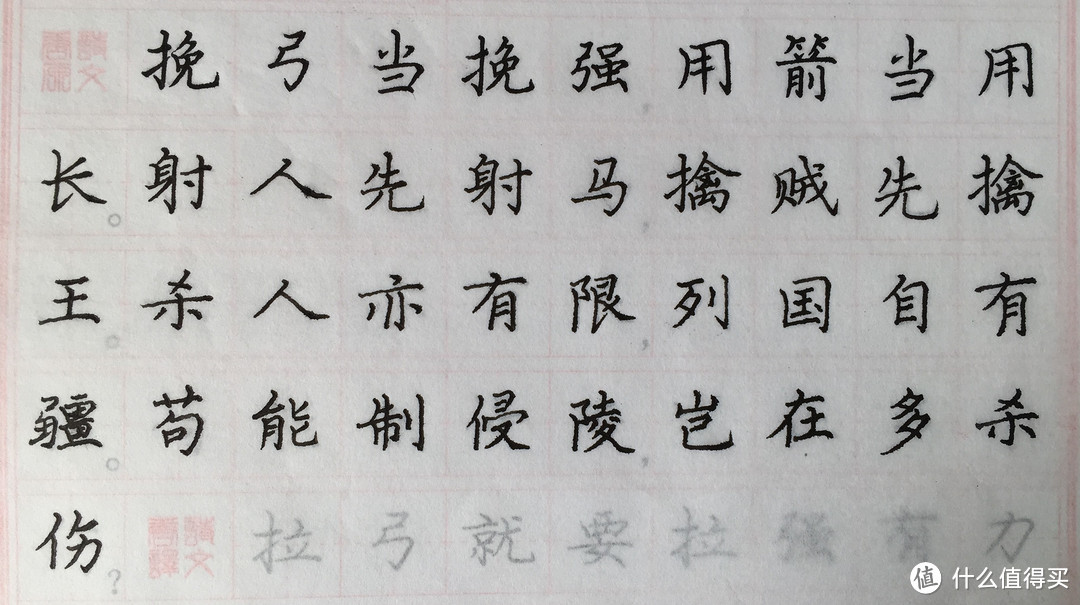 挽弓当挽强,用箭当用
长。射人先射马,擒贼先擒
王。杀人亦有限,列国自有
疆。苟能制侵陵,岂在多杀
伤?拉弓就要拉强有力
值 什么值得买